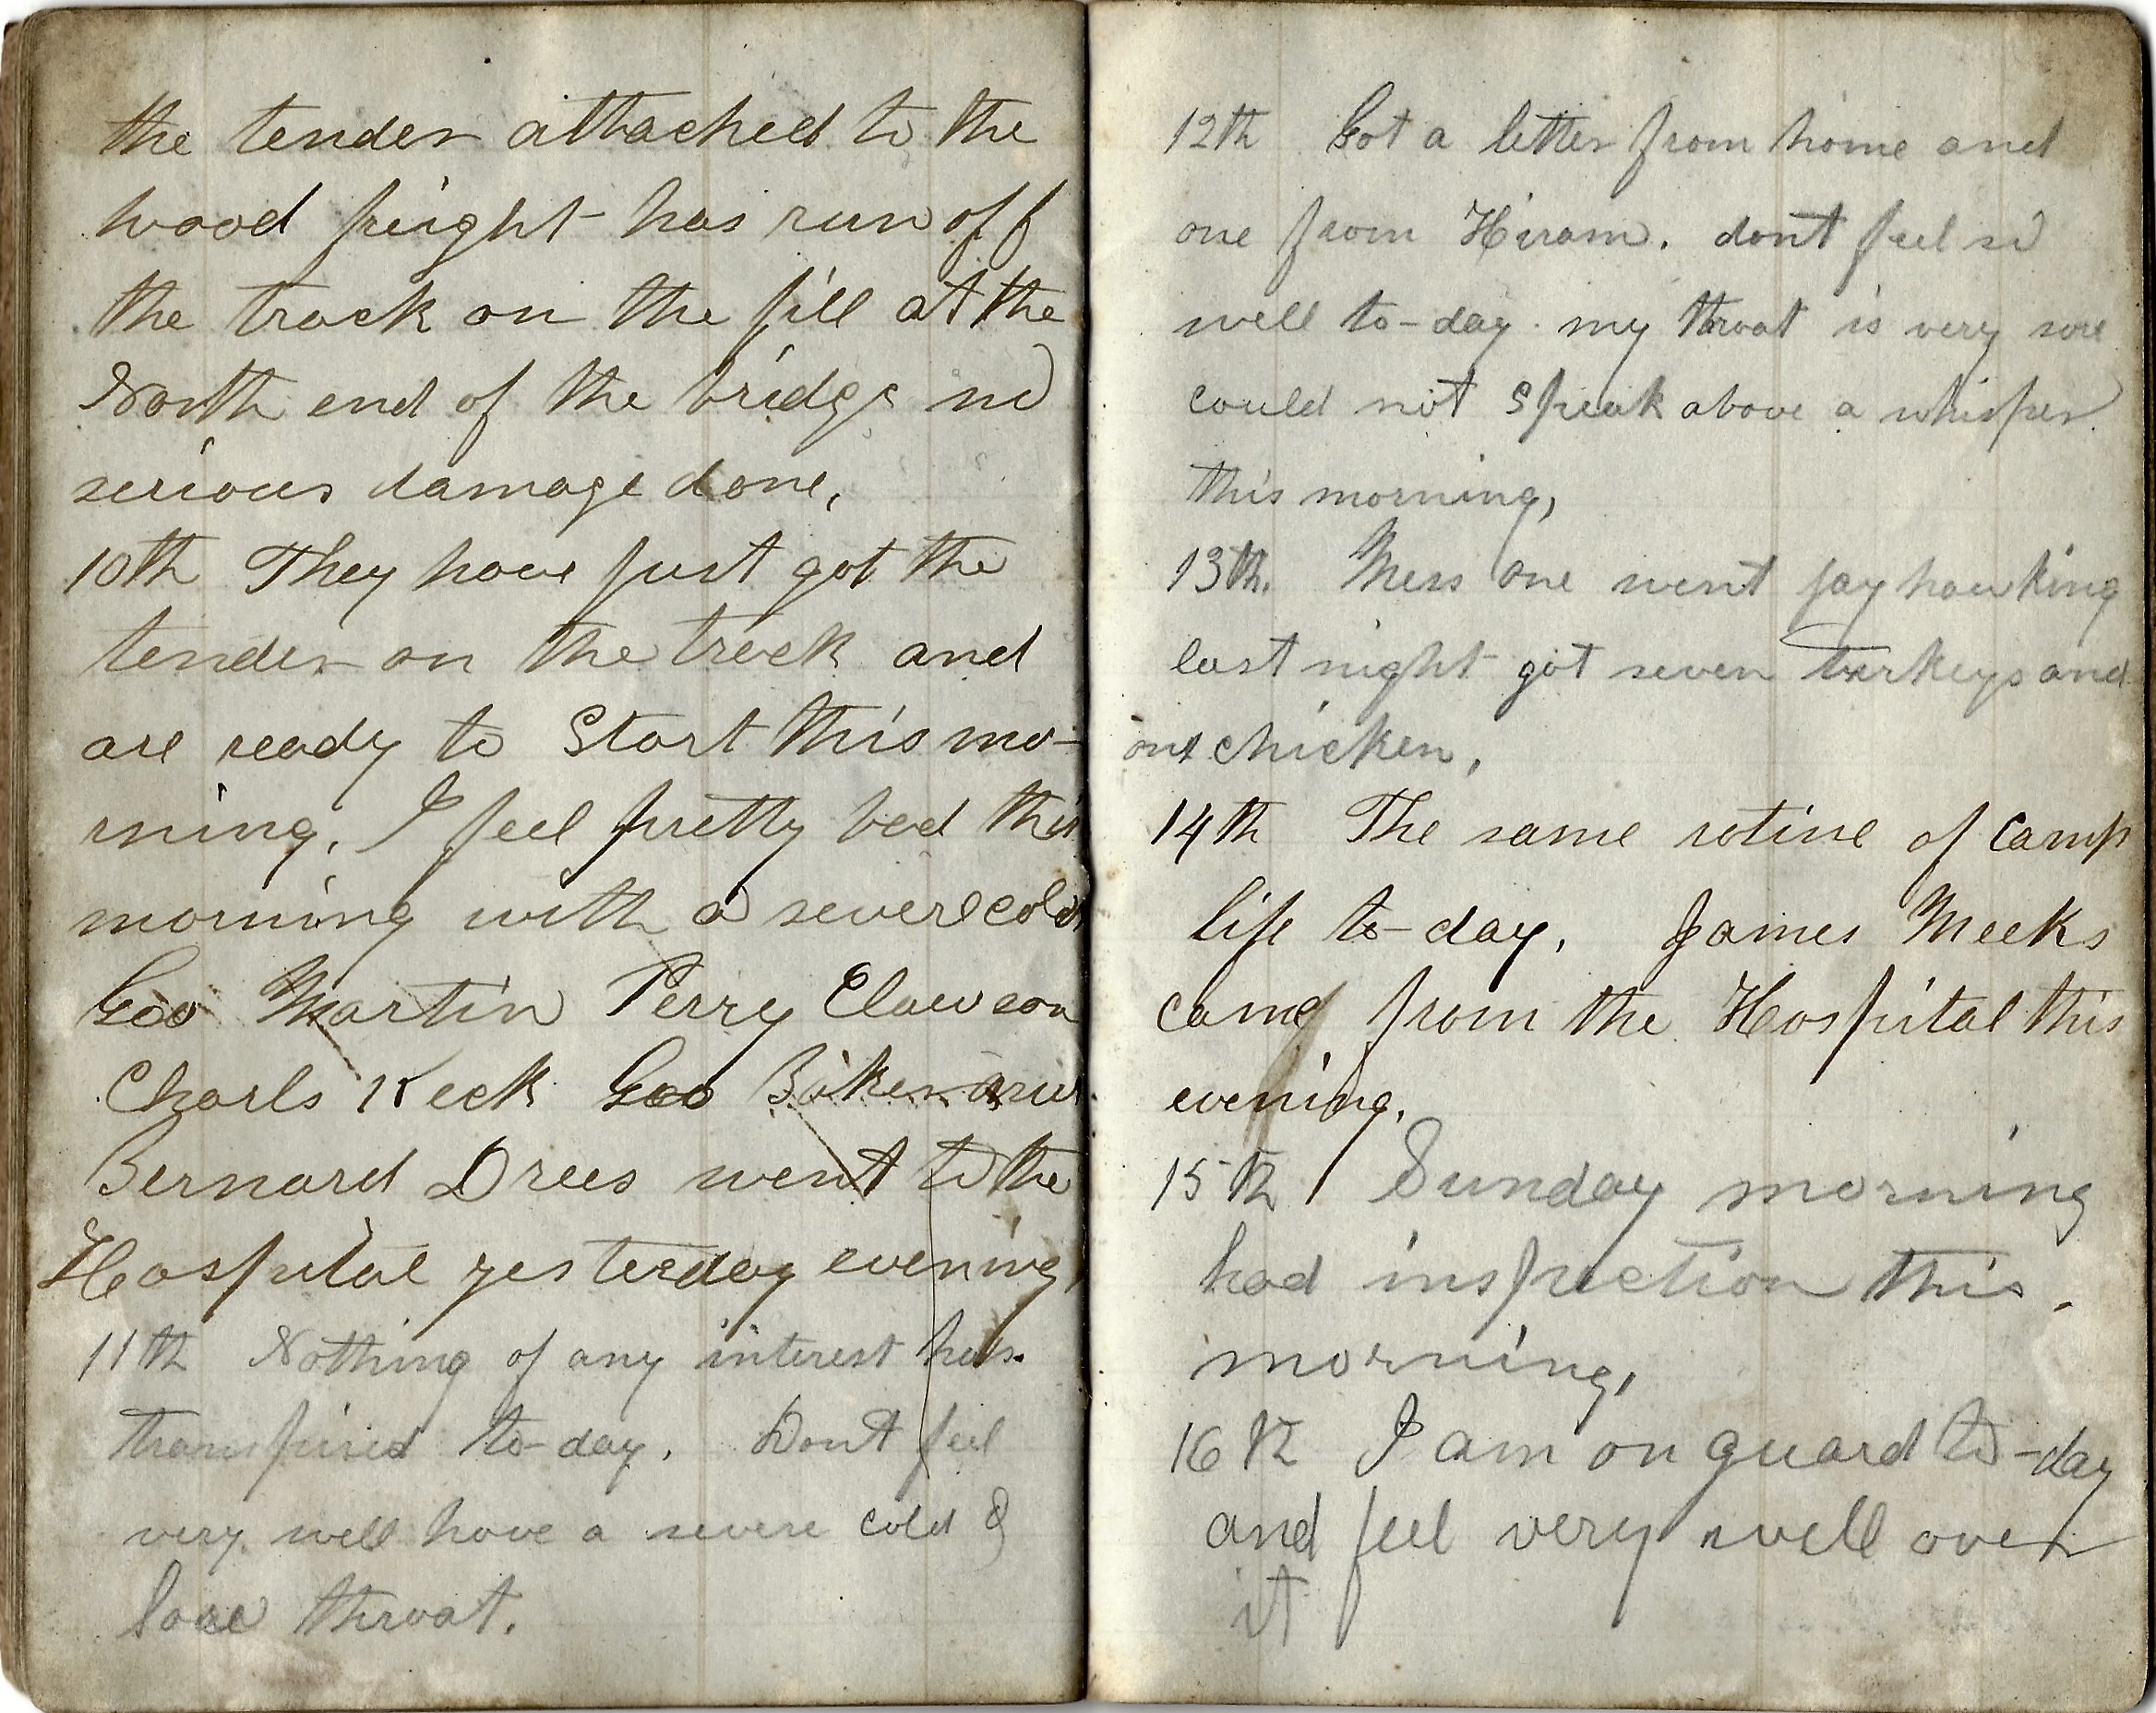 the tender attached to the
wood freight has run off
the track on the fill at the
North end of the bridge no
serious damage done,
10th They have just got the
tender on the track and
are ready to Start this mo-
rning, I feel pretty bad this
morning with a severe cold
Geo Martin Perry Clawson
Charls Keck Geo Baker and
Bernard Drees went to the
Hospital yesterday evening,
11th Nothing of any interest has
transpired to-day. Dont feel
very well have a severe cold &
Sore throat.
12th Got a letter from home and
one from Hiram. dont feel so
well to-day. my throat is very sore
could not Speak above a whisper
this morning,
13th. Mess one went jayhawking
last night got seven turkeys and
one chicken,
14th The same rotine of Camp
life to-day. James Meeks
came from the Hospital this
evening,
15th Sunday morning
had inspection this
morning,
16th I am on guard to-day
and feel very well over
it